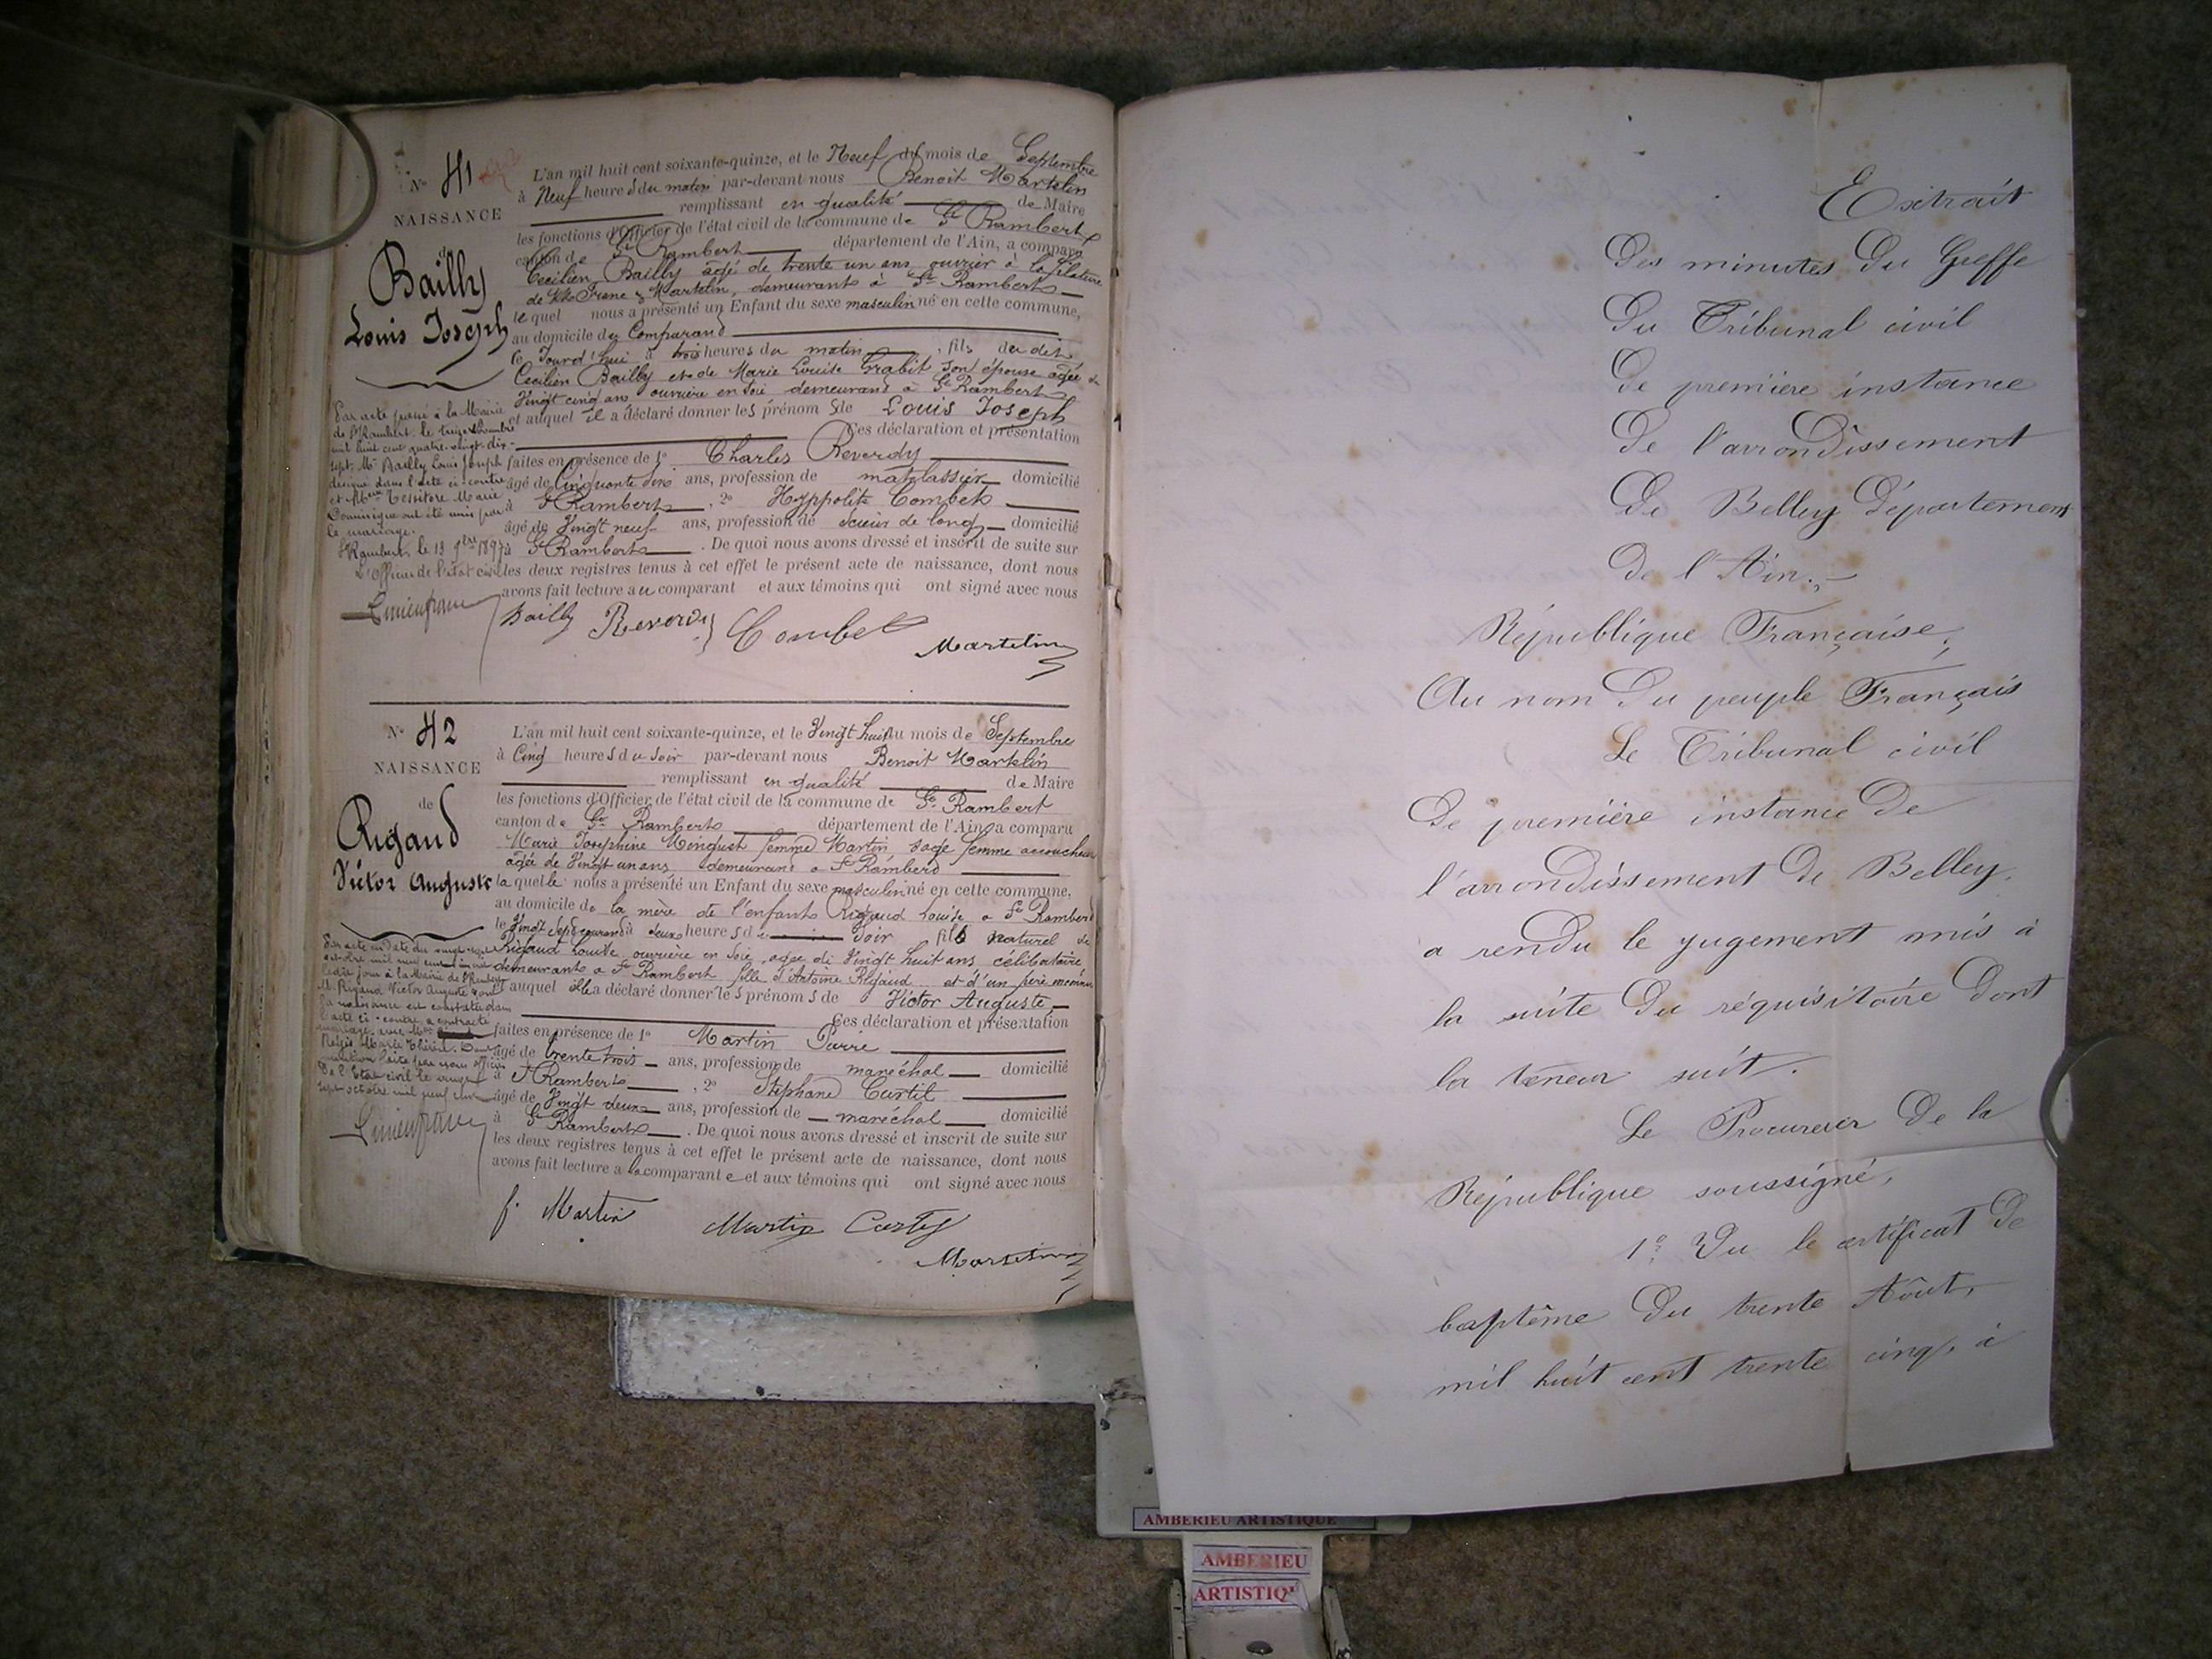 N° 41
NAISSANCE
de
Bailly
Louis Joseph
L'an mil huit cent soixante-quinze, et le Neuf du mois de Septembre
à Neuf heures du matin par-devant nous Benoit Martelin
remplissant en qualité de Maire
les fonctions d'Officier de l'état civil de la commune de St Rambert
canton de St Rambert département de l'Ain, a comparu
Cecilien Bailly agé de trente un ans ouvrier à la filature
de Franc & Martelin, demeurant à St Rambert
lequel nous a présenté un Enfant du sexe masculin né en cette commune,
au domicile du Comparant
Ce Jourd'hui à trois heures du matin, fils du dit
Cecilien Bailly et de Marie Louise Grabit son épouse agée de
Vingt cinq ans ouvrière en soie demeurant à St Rambert
et auquel il a déclaré donner les prénoms de Louis Joseph
Ces déclaration et présentation
faites en présence de 1° Charles Reverdy
âgé de Cinquante ans, profession de matelassier domicilié
à St Rambert, 2° Hyppolite Combet
âgé de Vingt neuf ans, profession de scieur de long domicilié
à St Rambert. De quoi nous avons dressé et inscrit de suite sur
les deux registres tenus à cet effet le présent acte de naissance, dont nous
avons fait lecture au comparant et aux témoins qui ont signé avec nous
Bailly Reverdy Combet
Martelin
Par acte passé à la Mairie
de St Rambert le treize
mil huit cent quatre-vingt-dix-
sept, Mr Bailly Louis Joseph
désigné dans l'acte ci-contre
et Tessitore Marie
Dominique ont été unis par
le mariage.
St Rambert le 13 9bre 1897
L'Officier de l'état civil
N° 42
NAISSANCE
de
Rigaud
Victor Auguste
L'an mil huit cent soixante-quinze, et le Vingt huit du mois de Septembre
à Cinq heures du soir par-devant nous Benoit Martelin
remplissant en qualité de Maire
les fonctions d'Officier de l'état civil de la commune de St Rambert
canton de St Rambert département de l'Ain, a comparu
Marie Josephine femme Martin sage femme accoucheuse
agée de Vingt un ans, demeurant à St Rambert
laquelle nous a présenté un Enfant du sexe masculin né en cette commune,
au domicile de la mère de l'enfant Rigaud Louise a St Rambert
le Vingt Sept courant à deux heures du Soir fils naturel de
Rigaud Louise ouvrière en soie, agée de Vingt huit ans célibataire
demeurant a St Rambert fille d'Antoine Rigaud et d'un père inconnu
et auquel elle a déclaré donner les prénoms de Victor Auguste
Ces déclaration et présentation
faites en présence de 1° Martin Pierre
âgé de trente trois ans, profession de maréchal domicilié
à St Rambert, 2° Stéphane Curtil
âgé de Vingt deux ans, profession de maréchal domicilié
à St Rambert. De quoi nous avons dressé et inscrit de suite sur
les deux registres tenus à cet effet le présent acte de naissance, dont nous
avons fait lecture a la comparante et aux témoins qui ont signé avec nous
f. Martin Martin
Martelin
Par acte en date du vingt-sept
octobre mil neuf cent
à la Mairie de St Rambert
M. Rigaud Victor Auguste dont
la naissance est constatée dans
l'acte ci-contre a contracté
mariage avec
Marie
mention faite par nous officier
de l'Etat civil le vingt
sept octobre mil neuf cent
Extrait
Des minutes Du Greffe
Du Tribunal civil
De première instance
De l'arrondissement
De Belley Département
De l'Ain.
République Française,
Au nom Du peuple Français
Le Tribunal civil
De première instance De
l'arrondissement De Belley,
a rendu le jugement mis à
la suite Du réquisitoire Dont
la teneur suit.
Le Procureur De la
République soussigné,
1° Vu le certificat De
baptême Du trente Août,
mil huit cent trente cinq, à
AMBERIEU ARTISTIQUE
AMBERIEU
ARTISTIQ